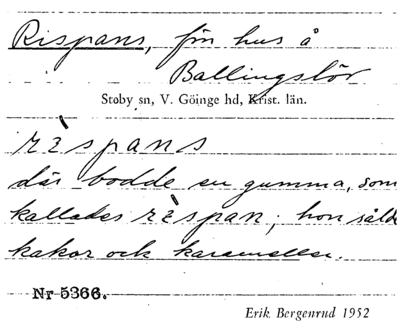 Rispans, fin hus å
Ballingslöv
Stoby sn, V. Göinge hd, Krist. län.
rìspans
där bodde en gumma, som
kallades rìspan; hon sålde
kakor och karameller.
Nr 5366.
Erik Bergenrud 1952